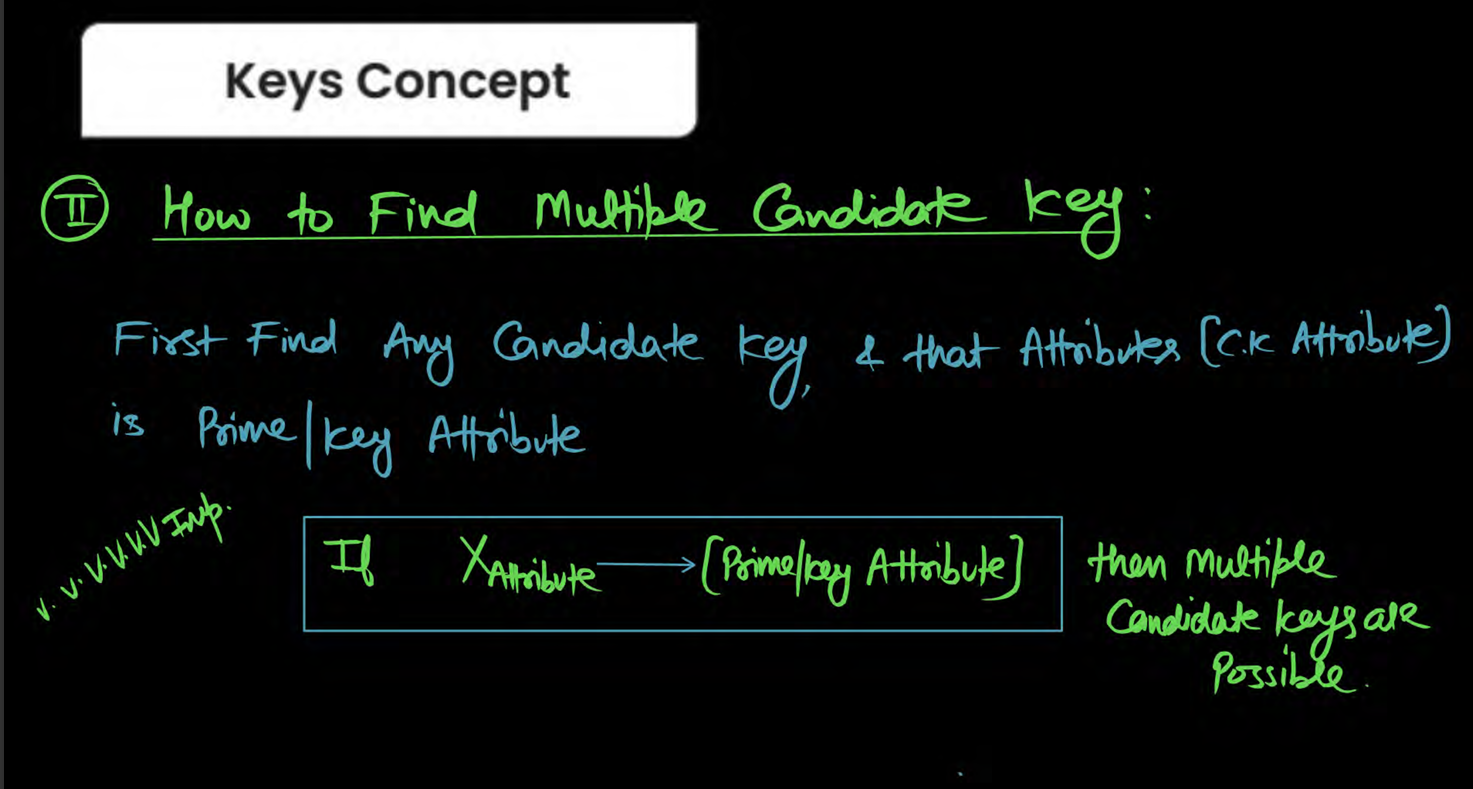 Keys Concept
II How to Find Multiple Candidate Key:
First Find Any Candidate key, & that Attributes [C.K Attribute]
is Prime/key Attribute
V. V. V. V. V. V Imp.
If X Attribute → [Prime/key Attribute] then Multiple
Candidate keys are
Possible.